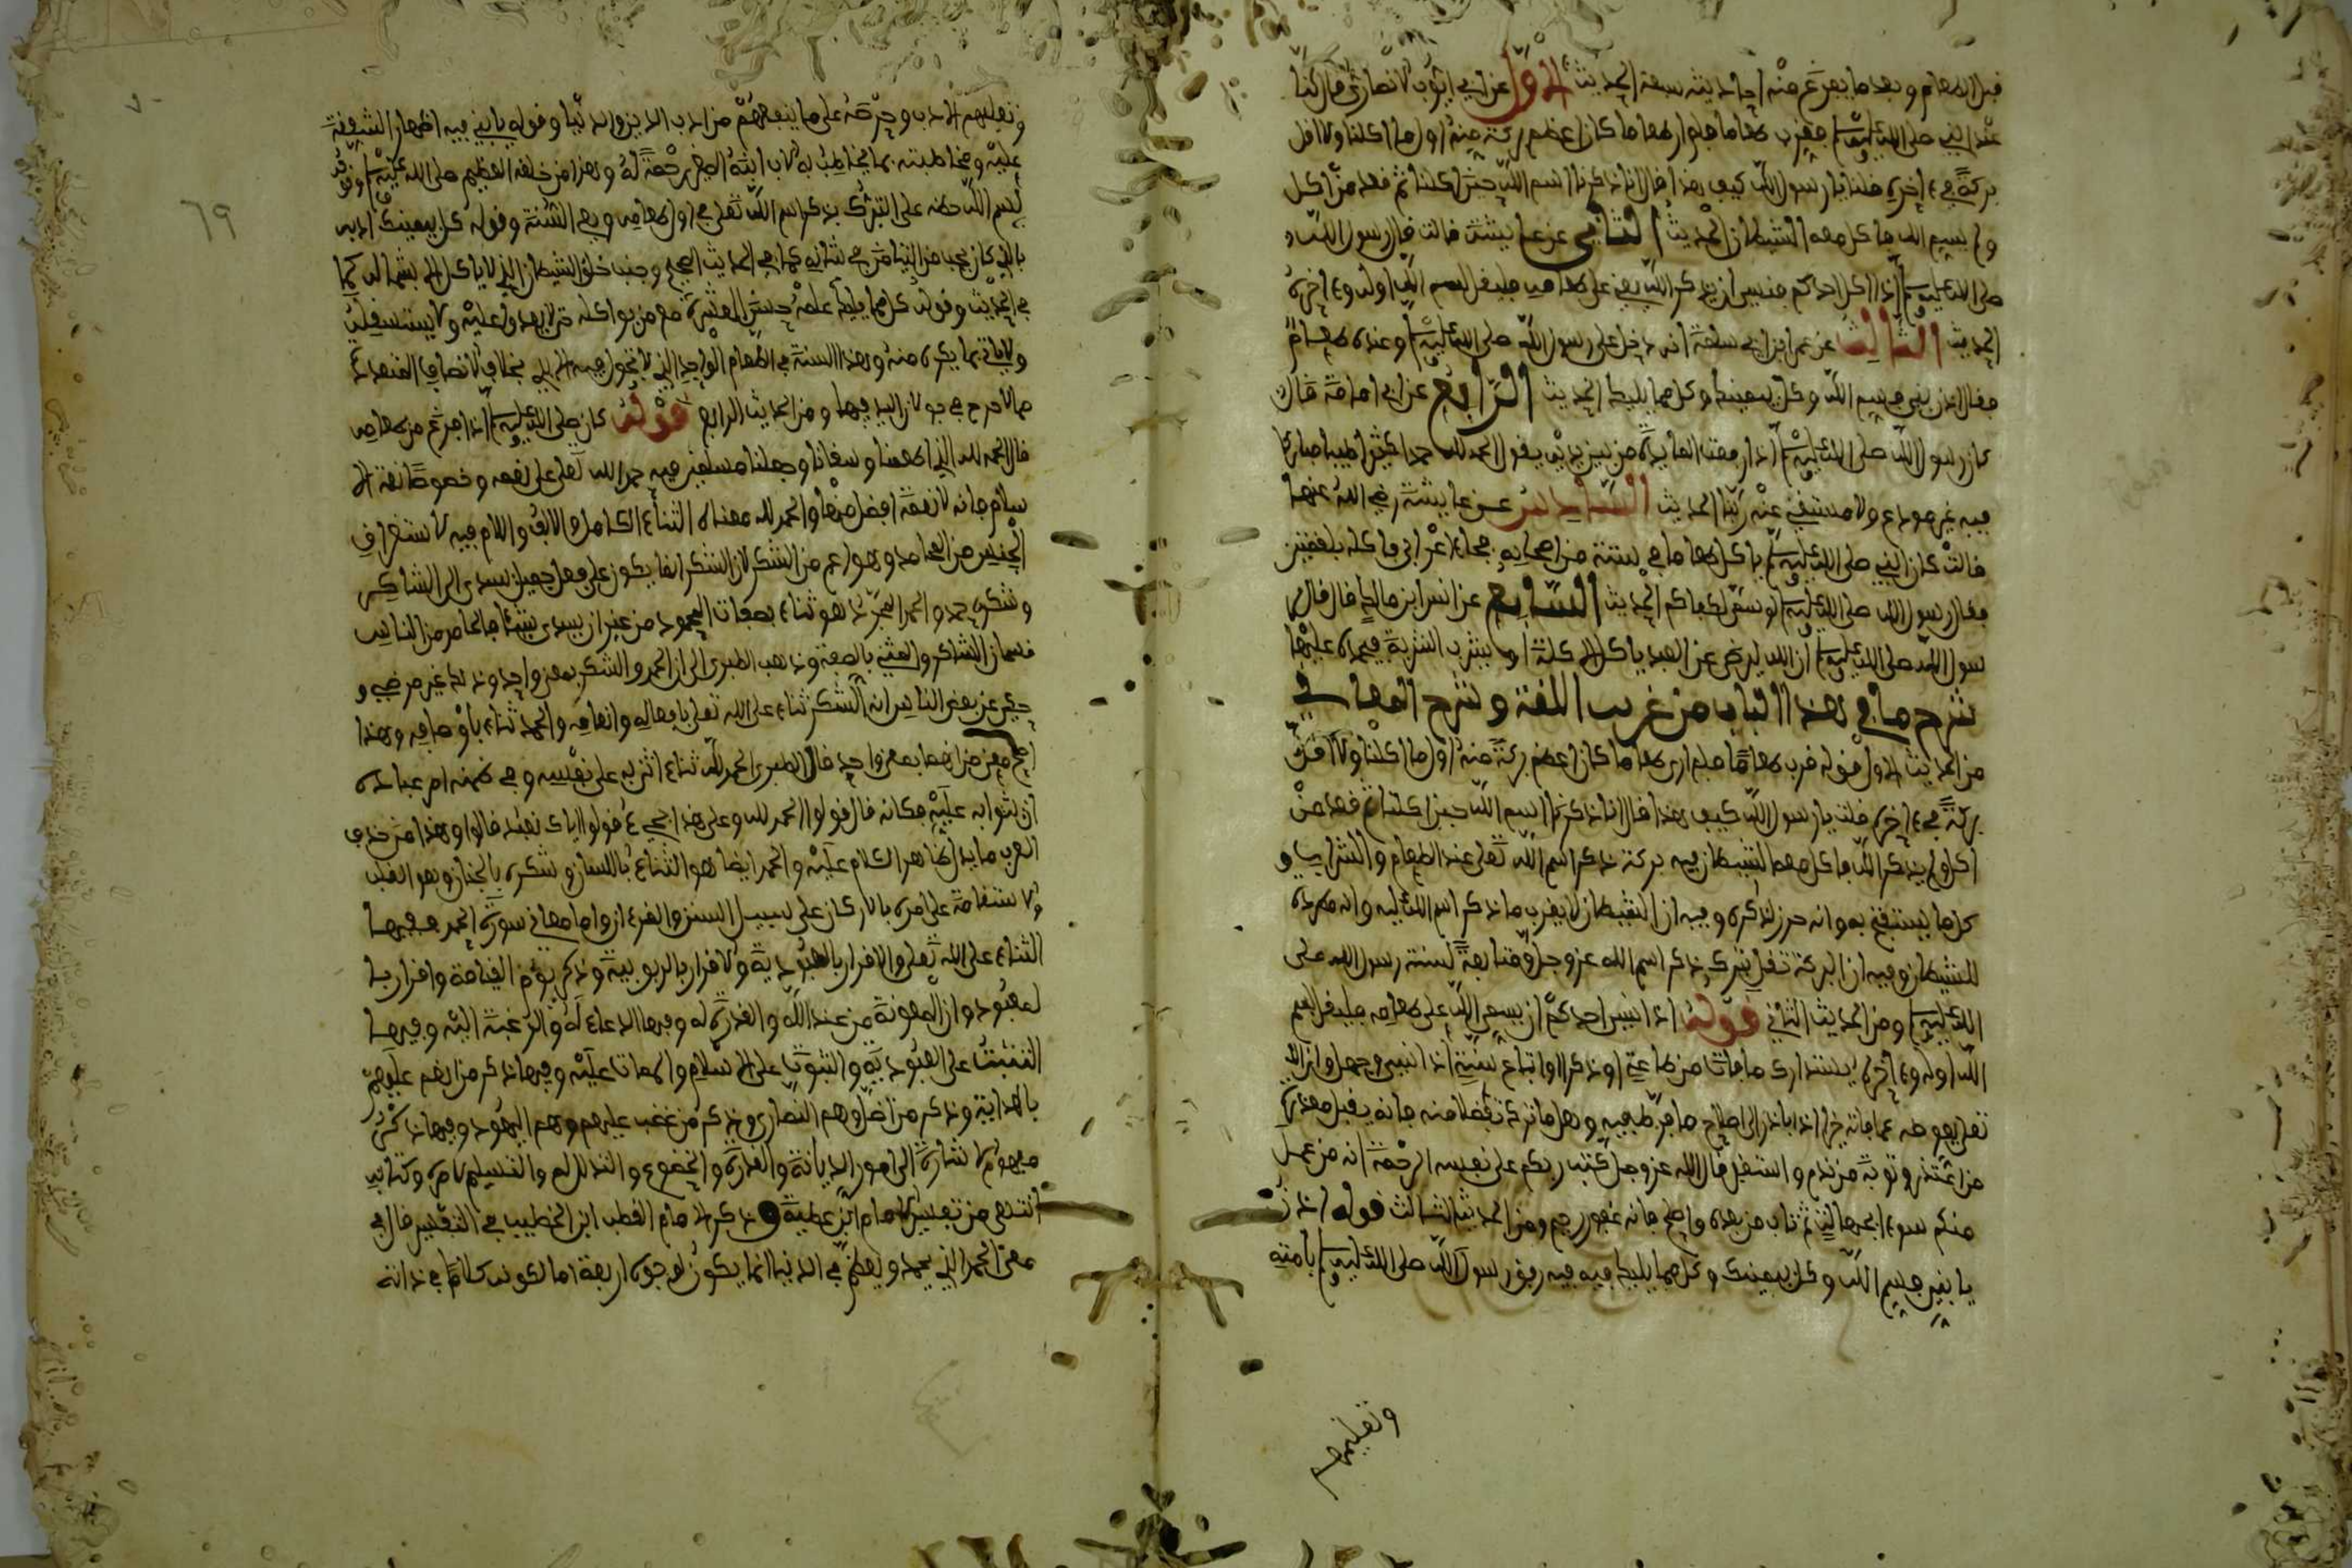 قبل الطعام وبعد ما يفرغ منه احاديثه سبعة الحديث الاول عن ابي ايوب الانصاري قال كنا
عند النبي صلى الله عليه وسلم فقرب طعاما فلم ار طعاما كان اعظم بركة منه اول ما اكلنا ولا اقل
بركة في ءاخره فلنا يا رسول الله كيف هذا قال انا ذكرنا اسم الله حين اكلنا ثم قعد من اكل
ولم يسم الله فاكل معه الشيطان الحديث الثاني عن عايشة قالت قال رسول الله
صلى الله عليه وسلم اذا اكل احدكم فنسي ان يذكر الله يعني على طعامه فليقل بسم الله اوله وءاخره
الحديث الثالث عن عمر ابن ابي سلمة انه دخل على رسول الله صلى الله عليه وسلم وعنده طعام
فقال ادن يا بني فسم الله وكل بيمينك وكل مما يليك الحديث الرابع عن ابي امامة قال
كان رسول الله صلى الله عليه وسلم اذا رفعت المايدة من بين يديه يقول الحمد لله حمدا كثيرا طيبا مباركا
فيه غير مودع ولا مستغنى عنه ربنا الحديث السادس عن عايشة رضي الله عنها
قالت كان النبي صلى الله عليه وسلم ياكل طعاما في ستة من اصحابه فجاء اعرابي فاكله بلقمتين
فقال رسول الله صلى الله عليه وسلم لو سمى لكفاكم الحديث السابع عن انس ابن مالك قال قال ر
سول الله صلى الله عليه وسلم ان الله ليرضى عن العبد ياكل الاكلة او يشرب الشربة فيحمده عليها
شرح ما في هذا الباب من غريب اللغة وشرح المعاني
من الحديث الاول قوله قرب طعاما فلم ار طعاما كان اعظم بركة منه اول ما اكلنا ولا اقل
بركة في ءاخره فلنا يا رسول الله كيف هذا قال انا ذكرنا اسم الله حين اكلنا ثم قعد من
اكل ولم يذكر الله فاكل معه الشيطان فيه بركة ذكر اسم الله تعلى عند الطعام والشراب و
كل ما يستفتح به وانه حرز لذاكره وفيه ان الشيطان لا يقرب ما ذكر اسم الله عليه وانه مطردة
للشيطان وفيه ان البركة تقل بترك ذكر اسم الله عز وجل ومتابعة لسنة رسول الله صلى
الله عليه وسلم ومن الحديث الثاني قوله اذا نسي احدكم ان يسمي الله على طعامه فليقل بسم
الله اوله وءاخره يستدارك ما فات من طاعة او ذكر او اتباع سنة اذا نسيه وجهل وان الله
تعلى يعوضه عما فاته خيرا اذا بادر الى اصلاح ما فرط فيه وهل ما تركه تفضلا منه فانه يقبل معذرة
من اعتذر وتوبة من ندم واستقل قال الله عز وجل كتب ربكم على نفسه الرحمة انه من عمل
منكم سوءا بجهالة ثم تاب من بعده واصلح فانه غفور رحيم ومن الحديث الثالث قوله ادن
يا بني فسم الله وكل بيمينك وكل مما يليك فيه رفق رسول الله صلى الله عليه وسلم بامته
وتعليمهم
وتعليمهم الادب وحرصه على ما ينفعهم من ادب الدين والدنيا وقوله يا بني فيه اظهار الشفقة
عليه ومخاطبته بما يخاطب به الاب ابنه الصغير رحمة له وهذا من خلقه العظيم صلى الله عليه وسلم وقوله
بسم الله حضه على التبرك بذكر اسم الله تعلى في اول طعامه وهي السنة وقوله كل بيمينك ادبه
بالذي كان يحب من التيامن في شانه كما في الحديث الصحيح وجنبه خلق الشيطان الذي لا ياكل الا بشماله كما
في الحديث وقوله كل مما يليك علمه حسن العشرة مع من يواكله حتى لا يعدوا عليه ولا يستسفله
ولا ياتي بما يكره منه وهذا السنة في الطعام الواحد الذي لا تجول فيه الايدي بخلاف الاصناف المتعددة
مما لا حرج في جولان اليد فيها ومن الحديث الرابع قوله كان صلى الله عليه وسلم اذا فرغ من طعامه
قال الحمد لله الذي اطعمنا وسقانا وجعلنا مسلمين فيه حمد الله تعلى على نعمه وخصوصا نعمة الا
سلام فانه لا نعمة افضل منها والحمد لله معناه الثناء الكامل والالف واللام فيه لاستغراق
الجنس من المحامد وهو اعم من الشكر لان الشكر انما يكون على فعل جميل يسدى الى الشاكر
وشكره حمد والحمد المجرد هو ثناء بصفات المحمود من غير ان يسدي شيئا فالحامد من الناس
قسمان الشاكر والمثني بالصفة وذهب الطبري الى ان الحمد والشكر بمعنى واحد وذلك غير مرضي و
حكي عن بعض الناس ان الشكر ثناء على الله تعلى بافعاله وانعامه والحمد ثناء باوصافه وهذا
اصح معنى من انهما بمعنى واحد قال الطبري الحمد لله ثناء اثنى به على نفسه وفي ضمنه امر عباده
ان يثنوا به عليه فكانه قال قولوا الحمد لله وعلى هذا يجيء قولوا اياك نعبد قالوا وهذا من حذف
العرب ما يدل ظاهر الكلام عليه والحمد ايضا هو الثناء باللسان وشكره بالجنان وهو القلب
والاستقامة على امره بالاركان على سبيل السنن والفرءان واما معاني سورة الحمد ففيها
الثناء على الله تعلى والاقرار بالعبودية والاقرار بالربوبية وذكر يوم القيامة واقرار با
لمعبود وان المعونة من عند الله والقدرة له وفيها الدعاء له والرغبة اليه وفيها
التثبت على العبودية والثبوت على الاسلام والممات عليه وفيها ذكر من انعم عليهم
بالهداية وذكر من اضل وهم النصارى وذكر من غضب عليهم وهم اليهود وفيها ذكر
الاشارة الى امور الديانة والقدرة والخضوع والتذلل له والتسليم لامره وكتابه
انتهى من تفسير الامام ابن عطية وذكر الامام القطب ابن الخطيب في التفسير قال في
معنى الحمد الذي يحمد ويعظم في الدنيا انما يكون لوجوه اربعة اما لكونه كاملا في ذاته
٦٩
٧٠